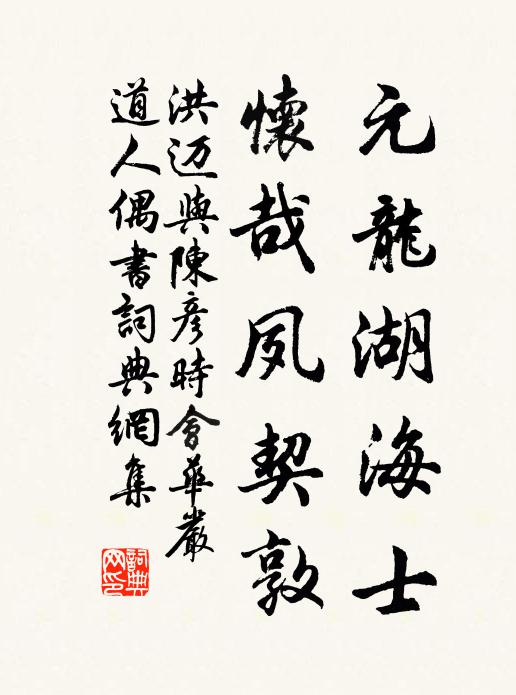 元龍湖海士
懷哉夙契敦
洪迈與陳彥時會華嚴
道人偶書詞典網集
詞典網印